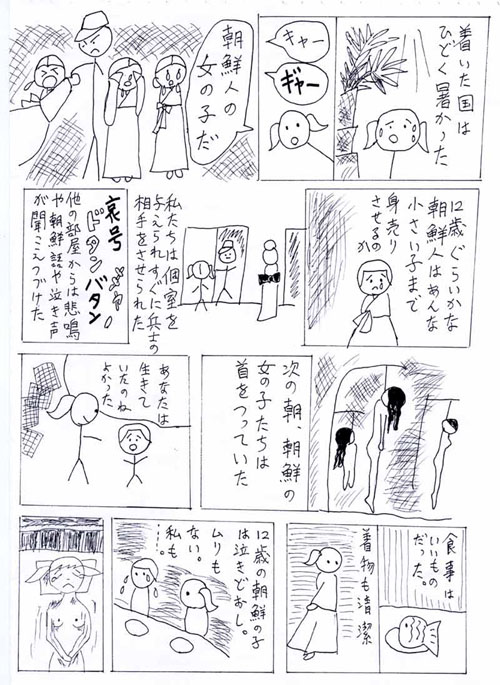 着いた国は
ひどく暑かった
キャー
ギャー
朝鮮人の
女の子だ
12歳ぐらいかな
朝鮮人はあんな
小さい子まで
身売り
させるのか
私たちは個室を
与えられすぐに兵士の
相手をさせられた
哀号
ギャー
ドタンバタン
他の部屋からは悲鳴
や朝鮮語や泣き声
が聞こえつづけた
次の朝、朝鮮の
女の子たちは
首をつっていた
あなたは
生きて
いたのね
よかった。
食事は
いいもの
だった。
着物も清潔
12歳の朝鮮の子
は泣きどおし。
ムリも
ない。
私も
…。